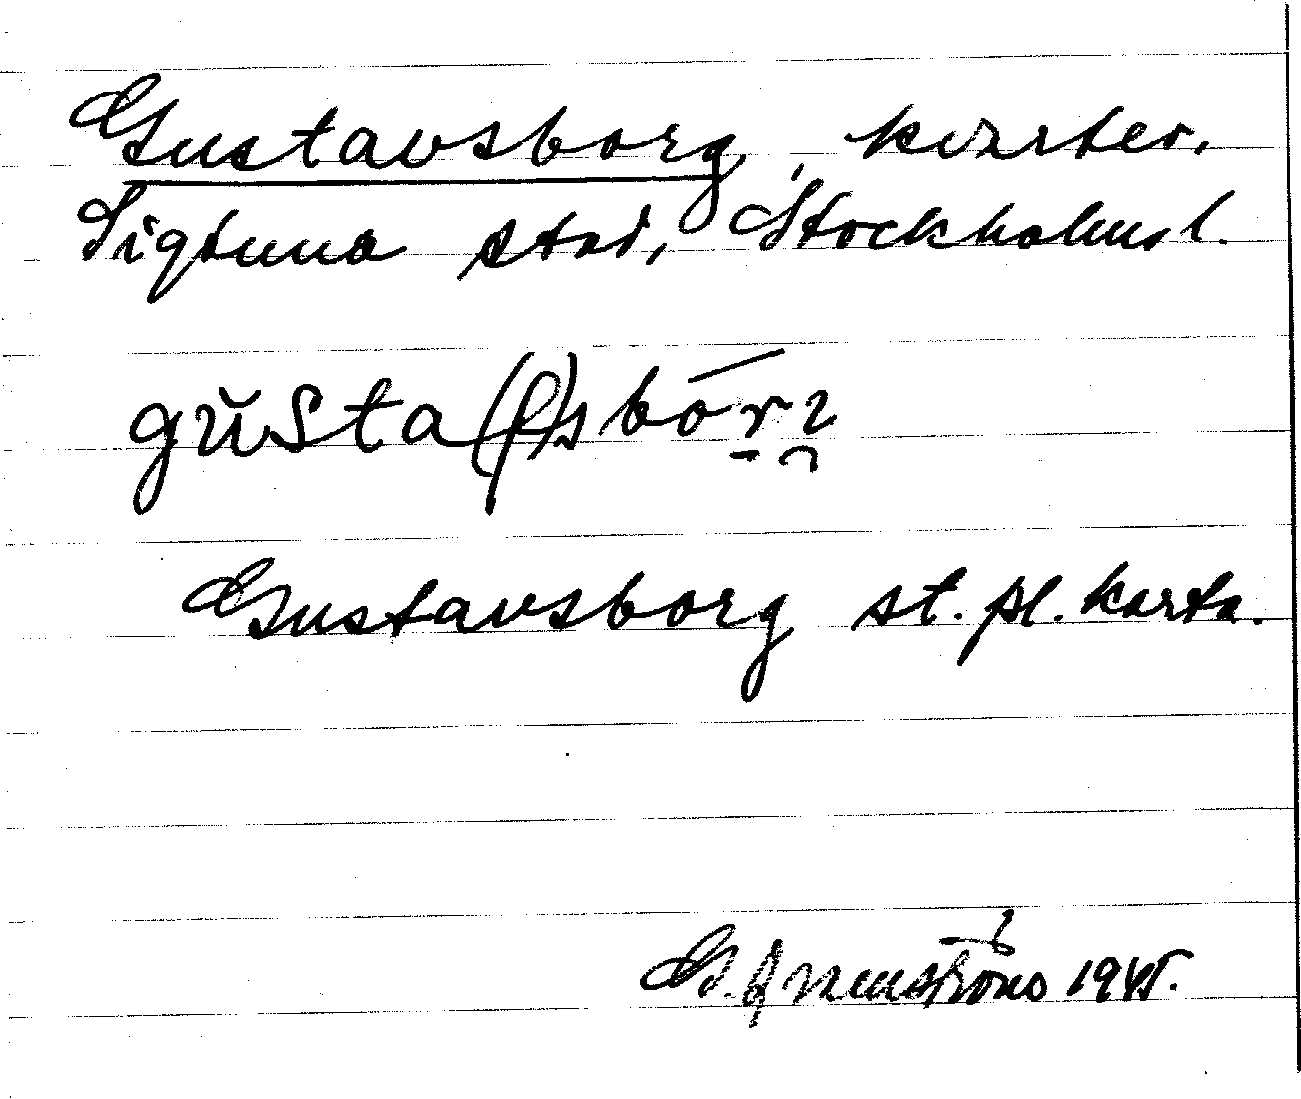 Gustavsborg, kvarter.
Sigtuna stad, Stockholms l.
gŭsta(f)sbórȷ
Gustavsborg st. pl. karta.
G. 1945.